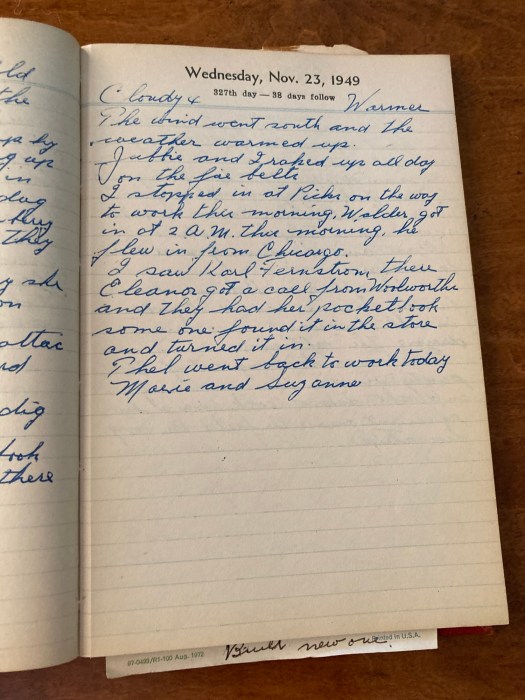 ld
the
up by
g up
in
dug
they
y she
on
attac
rd
dig
took
there
Wednesday, Nov. 23, 1949
327th day — 38 days follow
Cloudy & Warmer
The wind went south and the
weather warmed up.
Jubbie and I raked up all day
on the fire belts
I stopped in at Picks on the way
to work this morning, Walder got
in at 2 A.M. this morning, he
flew in from Chicago.
I saw Karl Fernstrom there
Eleanor got a call from Woolworths
and they had her pocketbook
some one found it in the store
and turned it in.
Thel went back to work today
Movie and Suzanne
97-0493/R1-100 Aug. 1972
Printed in U.S.A.
Built new one.